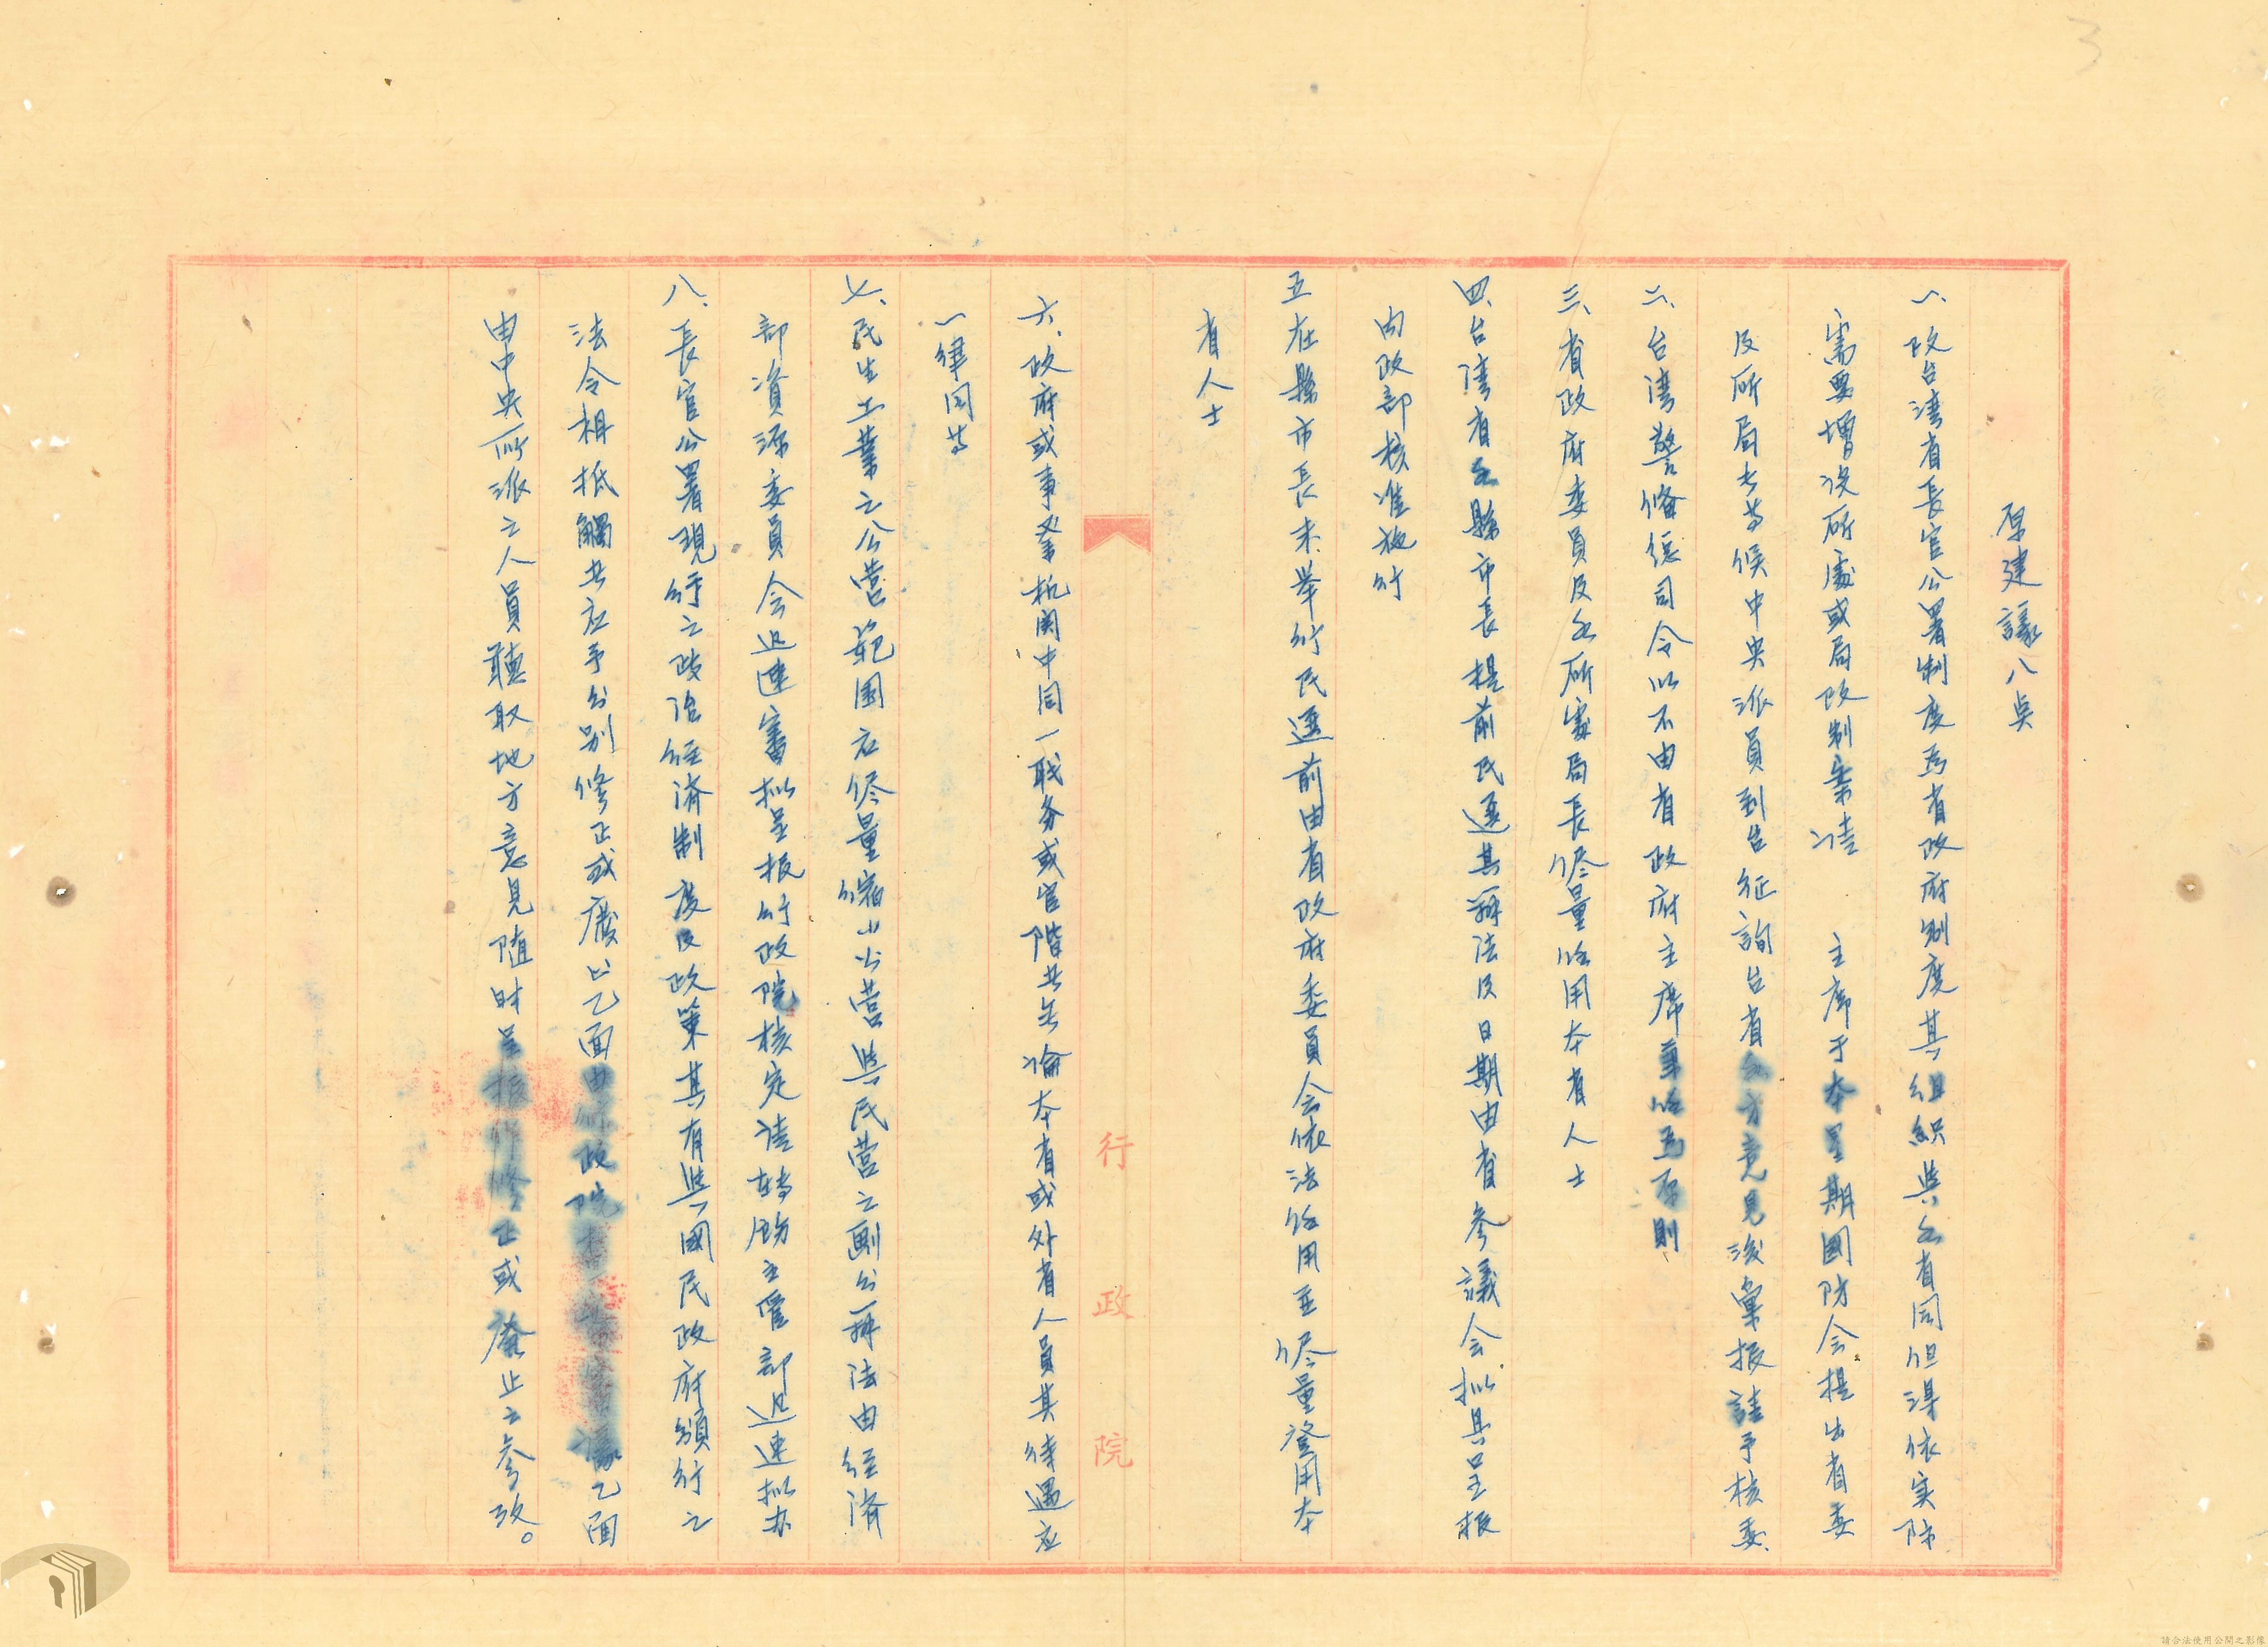 原建議八点
一、改台湾省長官公署制度為省政府制度其組織與各省同但得依实际
需要增设所處或局改制案请 主席于本星期國防会提出省委
及所局长等候中央派員到台征詢台省各方意見後彙报請予核委
二、台湾警俻總司令以不由省政府主席兼任為原則
三、省政府委員及各所處局長侭量任用本省人士
四、台湾省各縣市長提前民選其辦法及日期由省参議会拟具呈报
内政部核准施行
五在縣市長未举行民選前由省政府委員会依法任用並侭量登用本
省人士
六、政府或事業机関中同一職务或官階者无論本省或外省人員其待遇应
一律同等
七、民生工業之公营範囲应侭量縮小公营與民营之劃分辦法由经済
部資源委員会迅速審拟呈报行政院核定请转飭主管部迅速拟办
八、長官公署現行之政治经済制度及政策其有與國民政府頒行之
法令相抵觸者应予分别修正或廢止乙面由行政院查案審議乙面
由中央所派之人員聽取地方意見随时呈报作修正或廢止之参攷。
行政院
3
請合法使用公開之影像